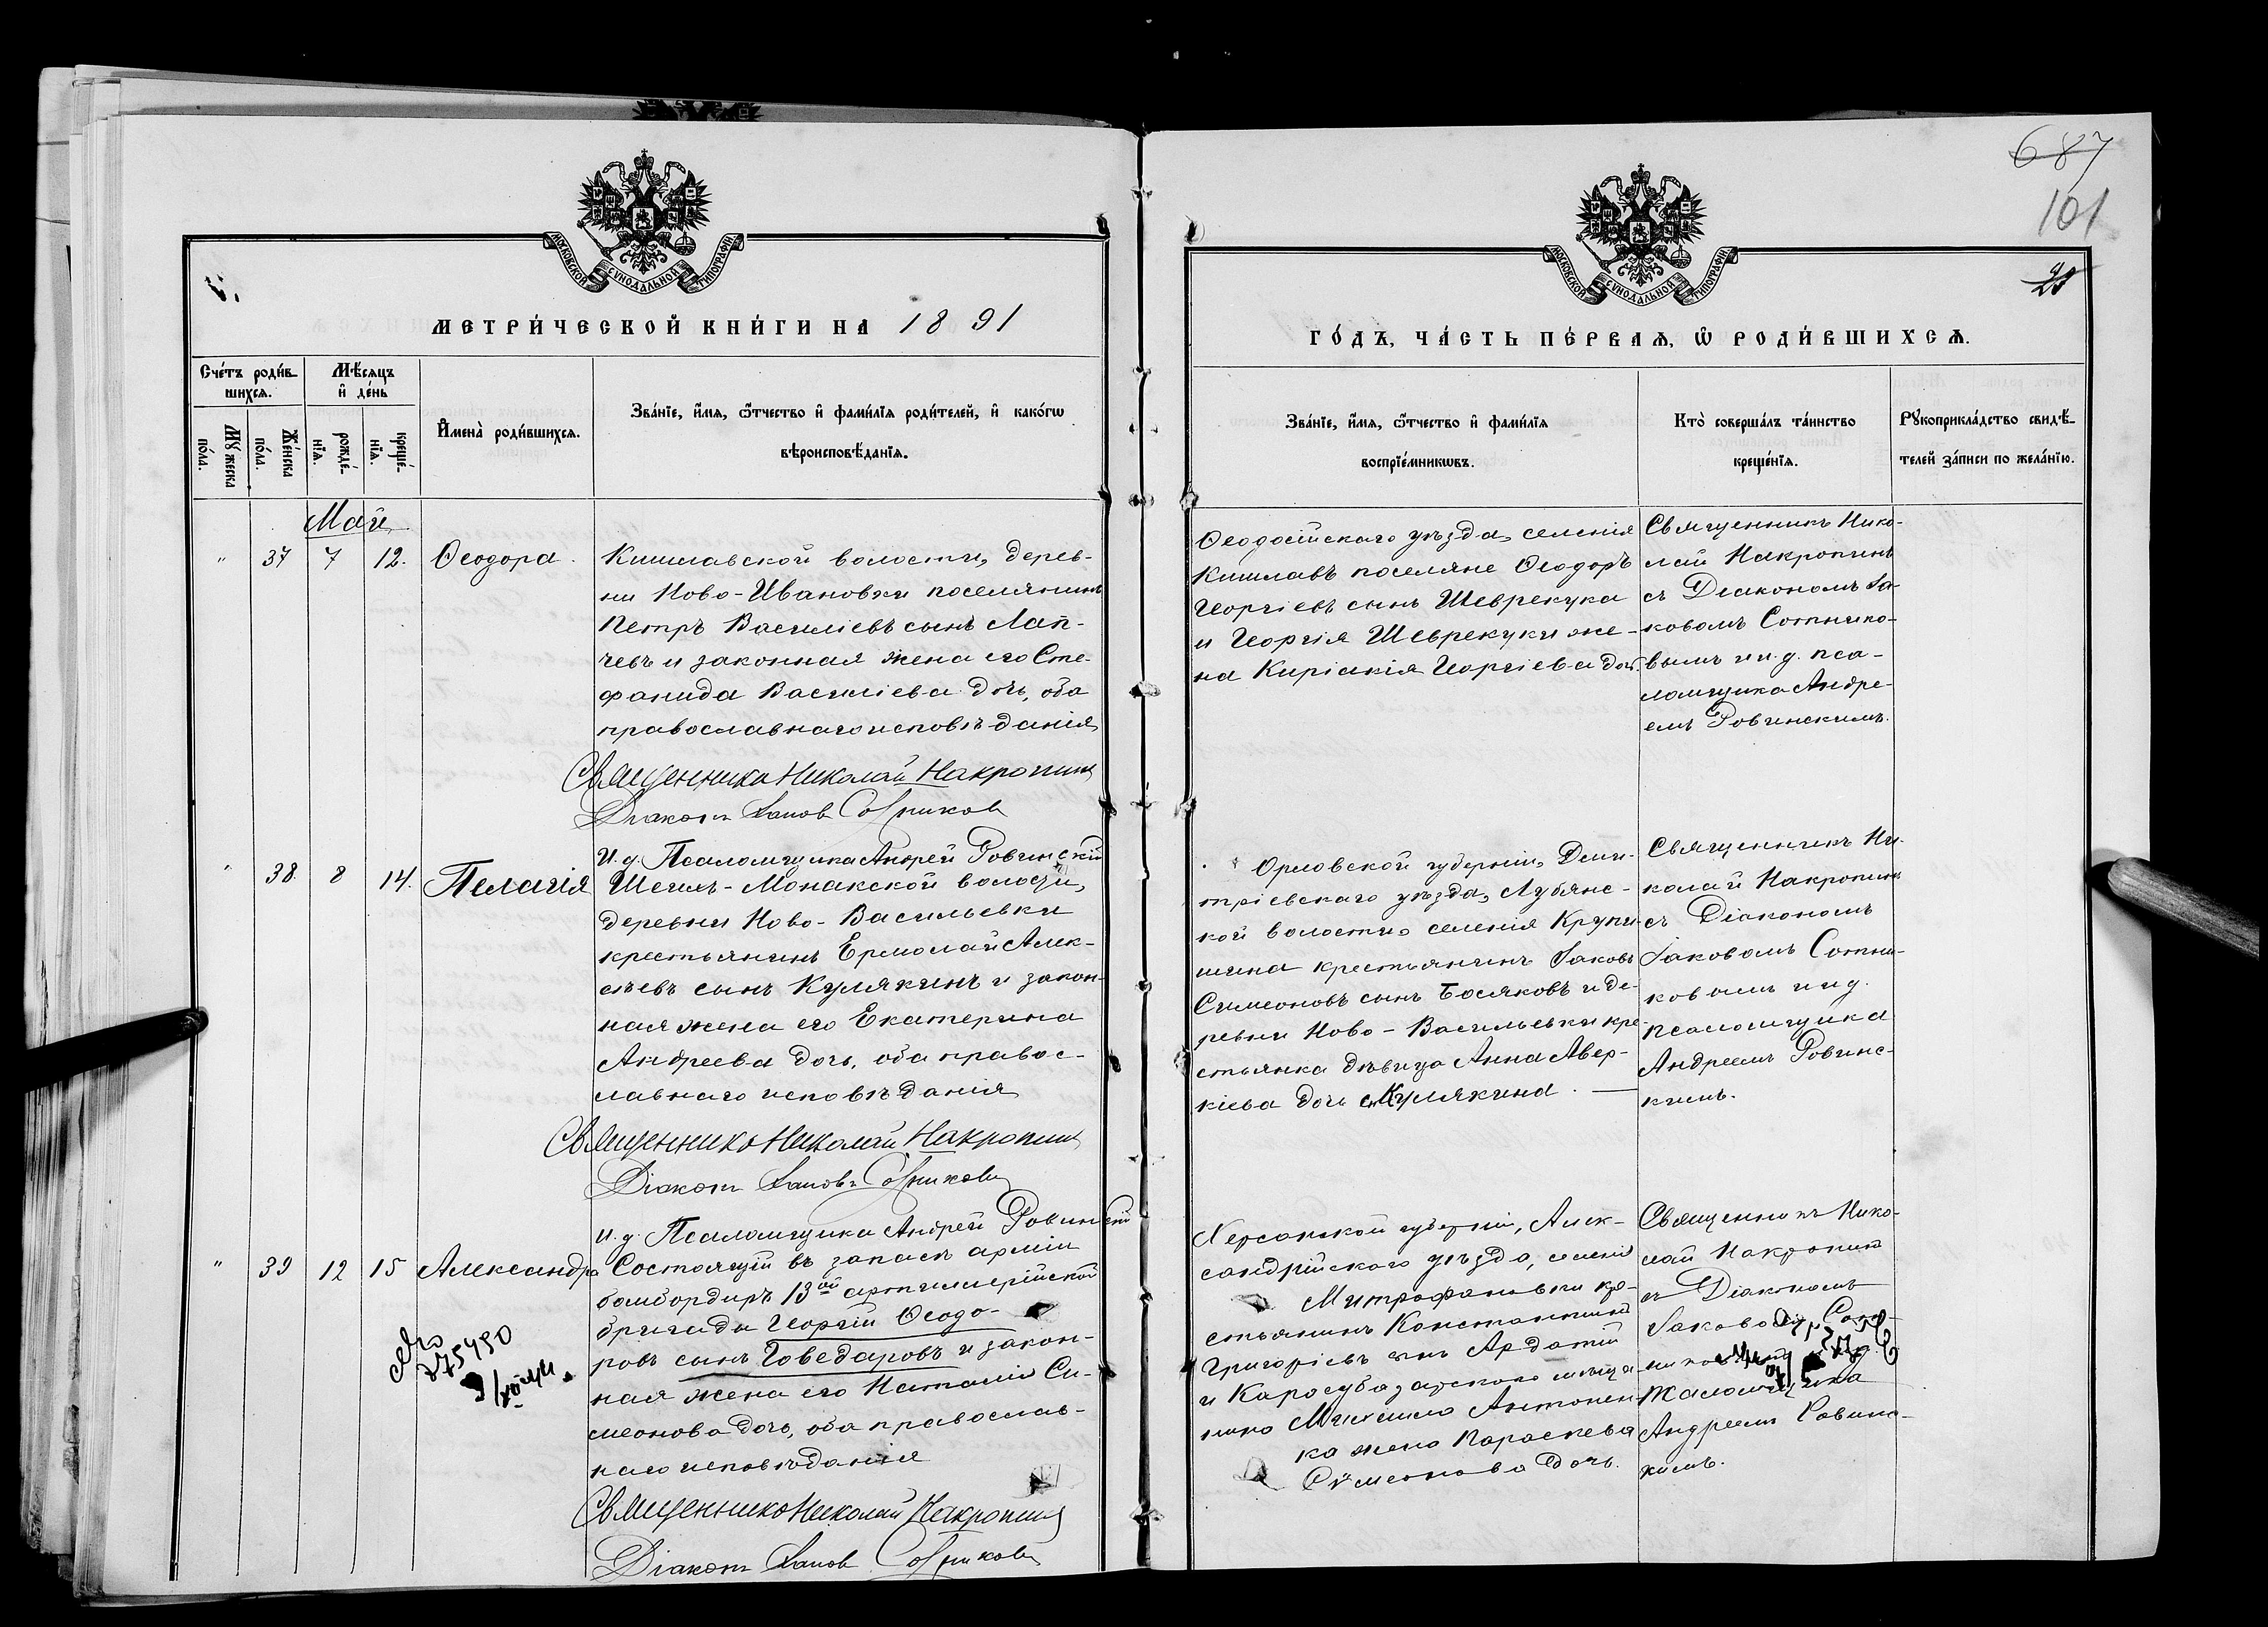 687
101
МОСКОВСКОЙ СѴНОДАЛЬНОЙ ТИПОГРАФІИ.
МЕТРИ́ЧЕСКОЙ КНИ́ГИ НА 1891
Сче́тъ роди́в-
шихся.
Мѣ́сяцъ
и҆ де́нь
Мꙋ́жеска
по́ла.
Же́нска
по́ла.
рожде́-
нїя.
креще́-
нїя.
И҆мена̀ роди́вшихся.
Зва́нїе, и҆́мя, ѻ҆́тчество и҆ фами́лїя роди́телей, и҆ како́гѡ
вѣроисповѣ́данїя.
Май
" 37 7 12. Ѳеодора.
Кишлавской волости, дерев-
ни Ново-Ивановки поселянинъ
Петръ Василіевъ сынъ Лап-
чевъ и законная жена его Сте-
фанида Василіева дочь, оба
православнаго исповѣданія
Священникъ Николай Накропинъ
Діаконъ Іаковъ Сотниковъ
И. д. Псаломщика Андрей Ровинскій
" 38. 8 14. Пелагія
Шейхъ-Монакской волости,
деревни Ново-Васильевки
крестьянинъ Ермолай Алек-
сѣевъ сынъ Кулякинъ и закон-
ная жена его Екатерина
Андреева дочь, оба правос-
лавнаго исповѣданія
Священникъ Николай Накропинъ
Діаконъ Іаковъ Сотниковъ
И. д. Псаломщика Андрей Ровинскій
" 39 12 15 Александра
Состоящій въ запасѣ арміи
бомбордиръ 13ой артиллерійской
бригады Георгій Ѳеодо-
ровъ сынъ Говедаровъ и закон-
ная жена его Наталія Си-
меонова дочь, оба православ-
наго исповѣданія
Священникъ Николай Накропинъ
Діаконъ Іаковъ Сотниковъ
МОСКОВСКОЙ СѴНОДАЛЬНОЙ ТИПОГРАФІИ.
ГО́ДЪ, ЧА́СТЬ ПЕ́РВАѦ, Ѽ РОДИ́ВШИХСѦ.
Зва́нїе, и҆́мя, ѻ҆́тчество и҆ фами́лїя
воспрїе́мникѡвъ.
Кто̀ соверша́лъ та́инство
креще́нїя.
Рꙋкоприкла́дство свидѣ́-
телей за́писи по жела́нїю.
Ѳеодосійскаго уѣзда, селенія
Кишлавъ поселяне Ѳеодоръ
Георгіевъ сынъ Шеврекука
и Георгія Шеврекуки же-
на Киріакія Георгіева доч.
Священникъ Нико-
лай Накропинъ
съ Діакономъ Іа-
ковомъ Сотнико-
вымъ и и. д. пса-
ломщика Андре-
емъ Ровинскимъ.
Орловской губерніи, Дми-
тріевскаго уѣзда, Лубянс-
кой волости селенія Крупы-
шина крестьянинъ Іаковъ
Симеоновъ сынъ Босяковъ и де-
ревни Ново-Васильевки кре-
стьянка дѣвица Анна Авер-
кіева дочь Кулякина.
Священникъ Ни-
колай Накропинъ
съ Діакономъ
Іаковомъ Сотни-
ковымъ и и. д.
псаломщика
Андреемъ Ровинс-
кимъ.
Херсонской губерніи, Алек-
сандрійскаго уѣзда, селенія
Митрофановки кре-
стьянинъ Константинъ
Григоріевъ сынъ
и Карасубазарскаго мѣща
нина Михаила Антонен-
ка жена Параскева
Сѵмеонова дочь.
Священникъ Нико-
лай Накропинъ
съ Діакономъ
Андреемъ Ровинс-
кимъ.